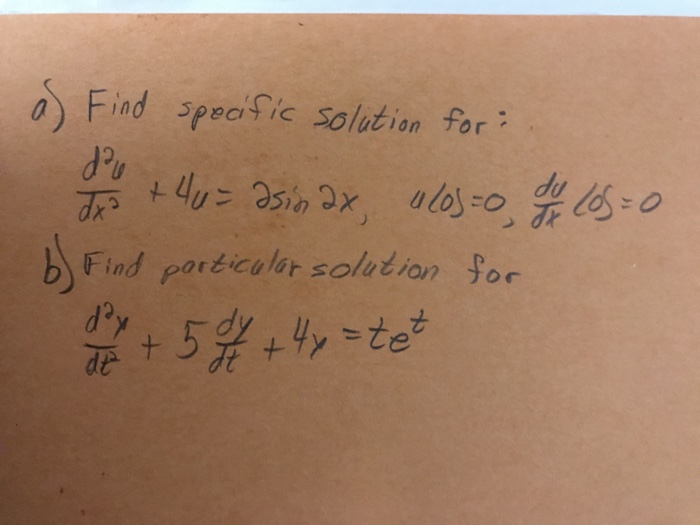 a) Find specific solution for:
d²u/dx² + 4u = 2sin 2x, u(0)=0, du/dx (0)=0
b) Find particular solution for
d²y/dt² + 5 dy/dt + 4y = te^t